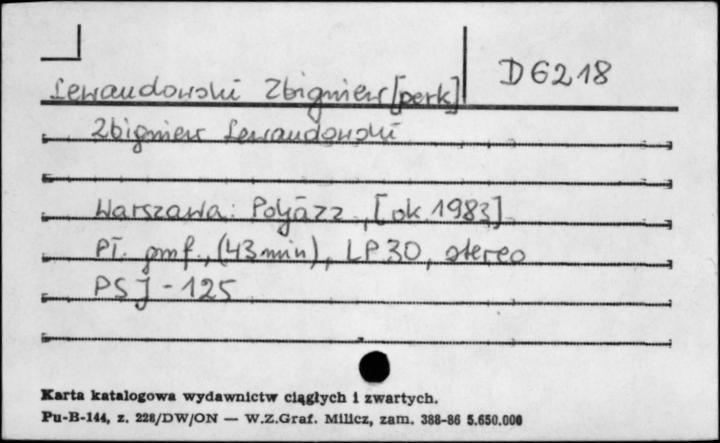 D6218
Lewandowski Zbigniew [perk]
Zbigniew Lewandowski
Warszawa: Poljazz, [ok 1983]
Pł. gmf., (43 min), LP 30, stereo
PSJ - 125
Karta katalogowa wydawnictw ciągłych i zwartych.
Pu-B-144, z. 228/DW/ON — W.Z.Graf. Milicz, zam. 388-86 5.650.000